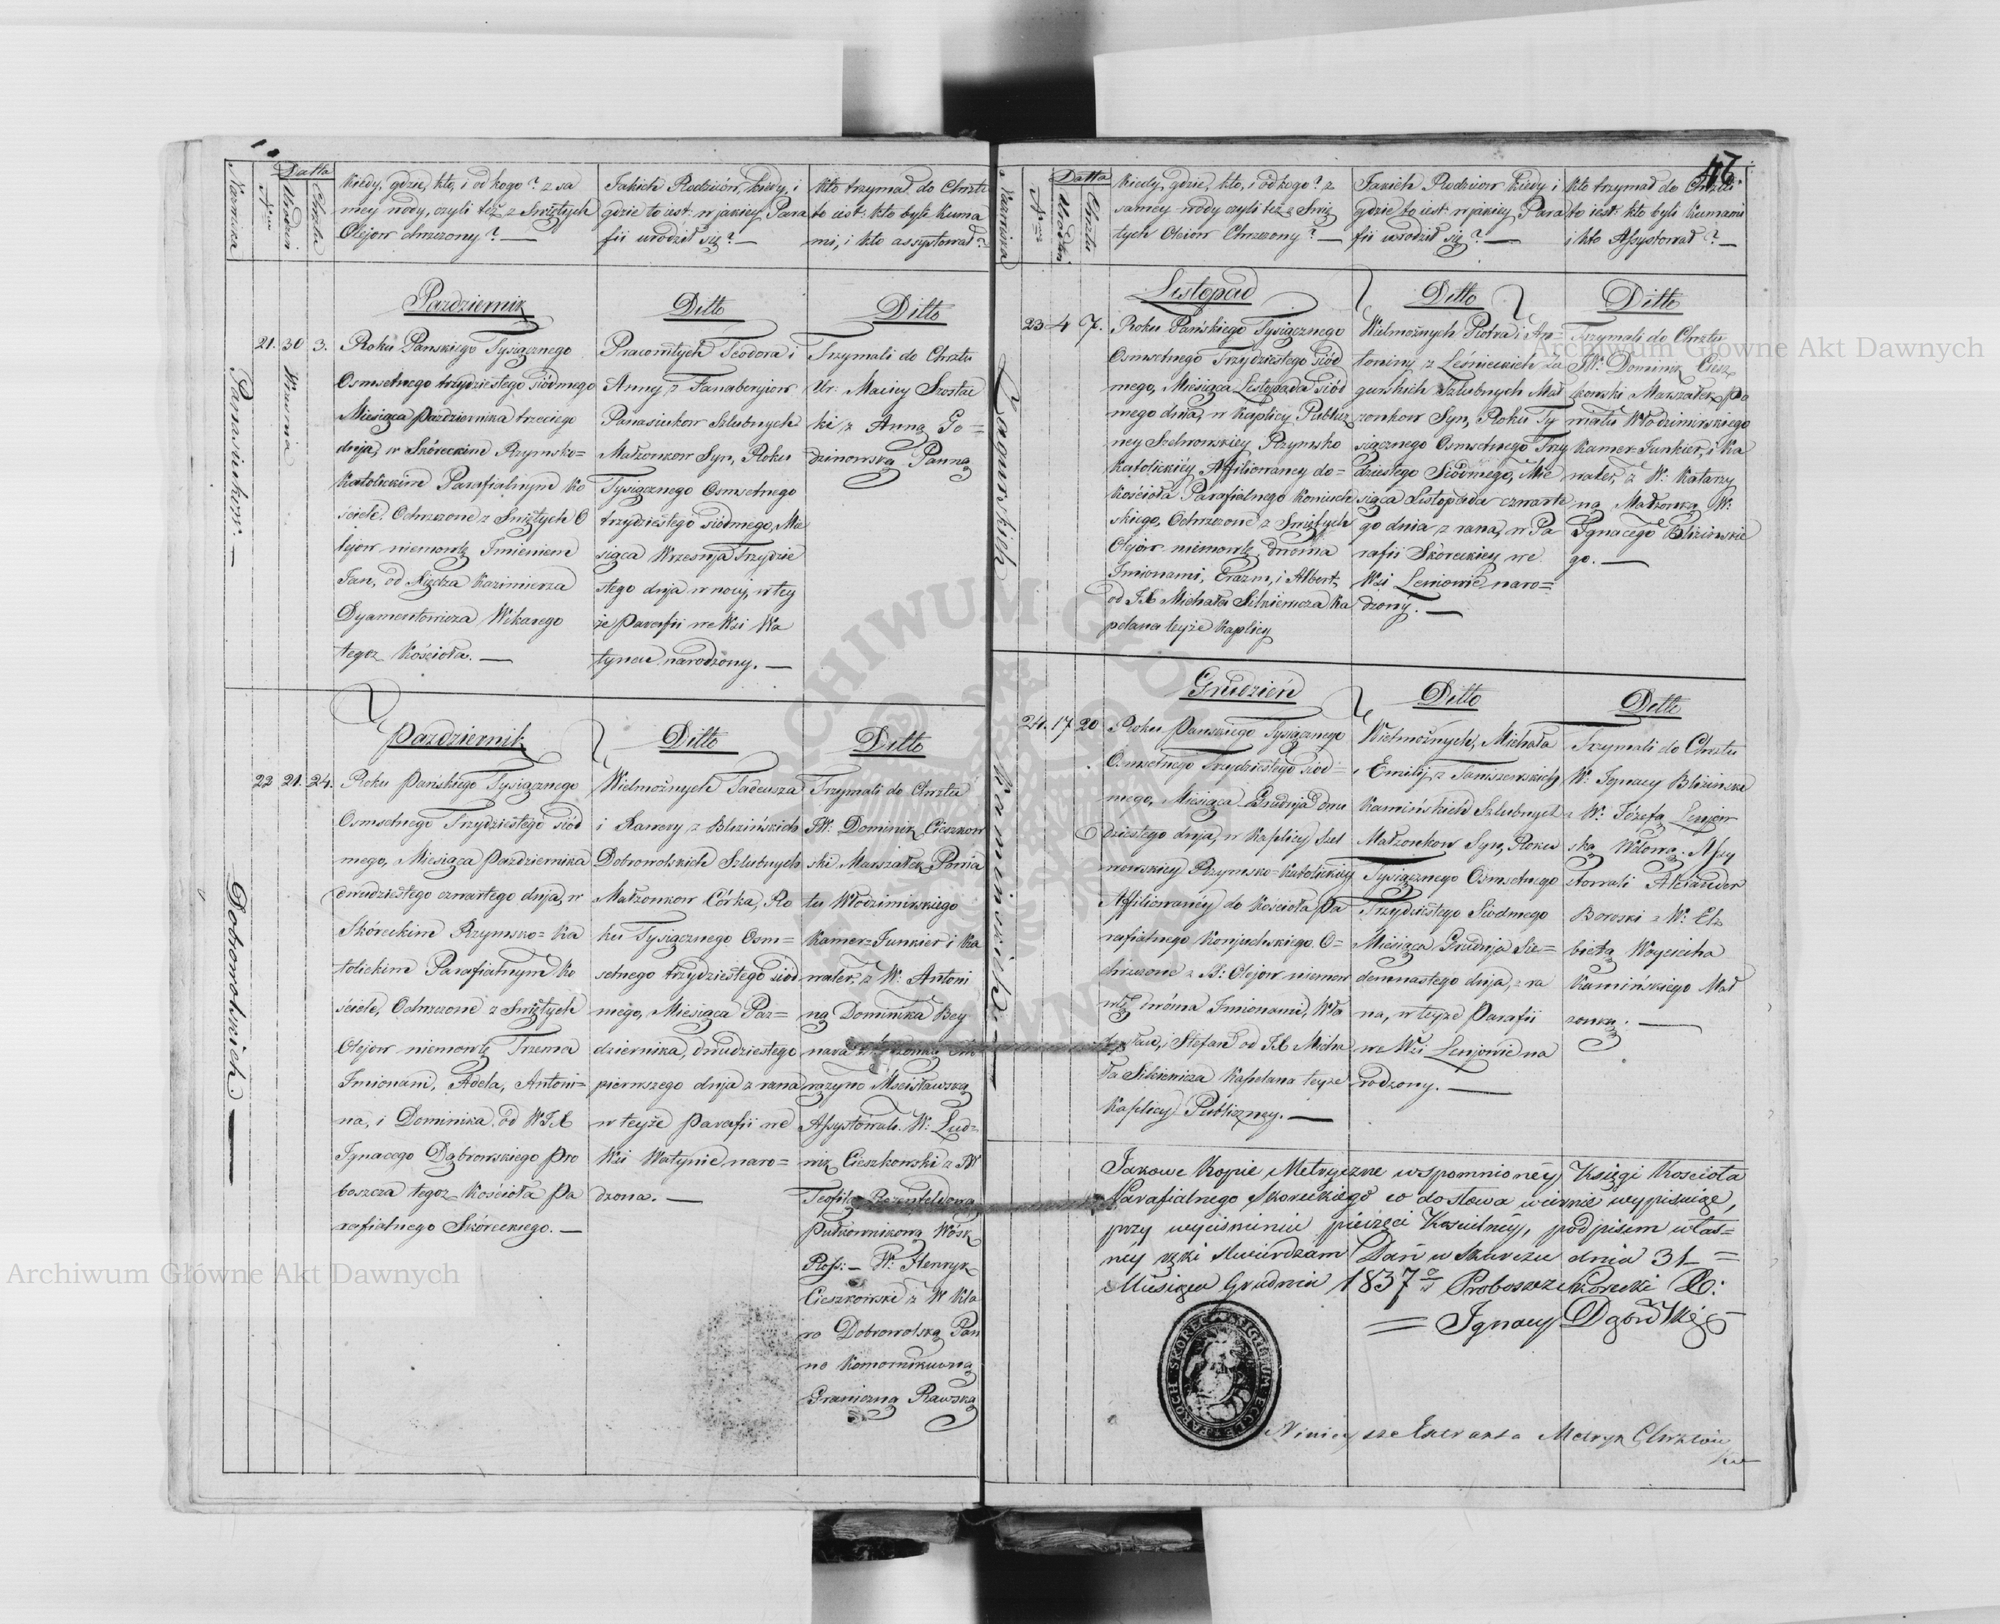 Nazwiska
Nrus
Datta
Urodzin
Chrztu
Kiedy, gdzie, kto, i od kogo? z sa
mey wody, czyli też z Świętych
Olejow chrzczony? —
Jakich Rodziców, kiedy, i
gdzie to iest: w jakiey Para
fii urodził się? —
Kto trzymał do Chrztu
to iest: kto byli Kuma
mi, i kto assystował?
Panasiukow. —
21. 30 3.
Września
Pazdziernik
Roku Pańskiego Tysiącznego
Osmsetnego trzydziestego siódmego
Miesiąca Pazdziernika trzeciego
dnia, w Skóreckim Rzymsko=
Katolickim Parafialnym Ko
ściele, Ochrzczone z Świętych O
lejow niemowlę Imieniem
Jan, od Xiędza Kazimierza
Dyamentowicza Wikarego
tegoz Kościoła. —
Ditto
Pracowitych Teodora i
Anny z
Panasiukow Szlubnych
Małżonkow Syn, Roku
Tysiącznego Osmsetnego
trzydziestego siódmego, Mie
siąca Września Trzydzie
stego dnia w nocy, w tey
że Parafii we Wsi Wa
tyncu narodzony. —
Ditto
Trzymali do Chrztu
Ur: Maciey Szosta
ki z Anną Go=
dzinowską Panną
Dobrowolskich —
22 21. 24.
Pazdziernik
Roku Pańskiego Tysiącznego
Osmsetnego Trzydziestego siód
mego, Miesiąca Pazdziernika
dwudziestego czwartego dnia, w
Skóreckim Rzymsko=Ka
tolickim Parafialnym Ko
ściele, Ochrzczone z Świętych
Olejow niemowlę Trzema
Imionami, Adela, Antoni=
na, i Dominika, od WJX
Ignacego Dąbrowskiego Pro
boszcza tegoz Kościoła Pa
rafialnego Skóreckiego. —
Ditto
Wielmożnych Tadeusza
i Xawery z Blizińskich
Dobrowolskich Szlubnych
Małżonkow Córka, Ro
ku Tysiącznego Osm=
setnego trzydziestego siód
mego, Miesiąca Paz=
dziernika, dwudziestego
pierwszego dnia z rana
w teyże Parafii we
Wsi Watynie naro=
dzona. —
Ditto
Trzymali do Chrztu
JW: Dominik Cieszkow
ski Marszałek Powia
tu Włodzimirskiego
Kamer=Junkier i Ka
waler, z W: Antoni
ną Dominika Bey
nara
Mscisławską
Assystowali. W: Lud=
wik Cieszkowski z JW
Teofilą
Pułkownikową Woisk
Ross: — W: Henryk
Cieszkowski z W Kla
rą Dobrowolską Pan
ną Komornikowną
Graniczną Rawską
47
Nazwiska
Nrus
Datta
Urodzin
Chrztu
Kiedy, gdzie, kto, i od kogo? z
samey wody czyli też z Świę
tych Oleiow Chrzczony? —
Jakich Rodzicow kiedy i
gdzie to iest: w jakiey Para
fii urodził się? —
Kto trzymał do Chrztu
to iest: kto byli Kumami
i kto Assystował? —
Zagurskich
23 4 7.
Listopad
Roku Pańskiego Tysiącznego
Osmsetnego Trzydziestego Siód
mego, Miesiąca Listopada siód
mego dnia, w Kaplicy Publicz
ney Szelwowskiey Rzymsko
Katolickiey Affiliowaney do=
Kościoła Parafialnego Koniuch
skiego, Ochrzczone z Świętych
Olejow niemowlę dwoma
Imionami, Erazm, i Albert,
od JX Michała Silkiewicza Ka
pelana teyże Kaplicy
Ditto
Wielmożnych Piotra i An=
toniny z Leśnieckich Za
gurskich Szlubnych Mał
żonkow Syn, Roku Ty
siącznego Osmsetnego Trzy
dziestego Siódmego, Mie
siąca Listopada czwarte
go dnia z rana, w Pa
rafii Skóreckiey we
Wsi Leniowie naro=
dzony. —
Ditto
Trzymali do Chrztu
JW: Dominik Ciesz
kowski Marszałek Po
wiatu Włodzimirskiego
Kamer=Junkier, i Ka
waler, z W: Katarzy
ną Małżonką W:
Ignacego Blizińskie
go. —
Kaminskich —
24. 17. 20
Grudzień
Roku Pańskiego Tysiącznego
Osmsetnego Trzydziestego siód=
mego, Miesiąca Grudnia dwu
dziestego dnia, w Kaplicy Szel
wowskiey Rzymsko=Katolickiey
Affiliowaney do Kościoła Pa
rafialnego Konjuchskiego. O=
chrzczone z SS: Olejow niemow
lę dwóma Imionami, Wła
i Stefan od JX Micha
ła Silkiewicza Kapelana teyże
Kaplicy Publiczney. —
Ditto
Wielmożnych, Michała
i Emilij z
Kamińskich Szlubnych
Małżonkow Syn, Roku
Tysiącznego Osmsetnego
Trzydziestego Siódmego
Miesiąca Grudnia Sie=
demnastego dnia, z ra
na, w teyże Parafii
we Wsi Lenjowie na
rodzony. —
Ditto
Trzymali do Chrztu
W: Ignacy Bliziński
z W: Józefą Lenjow
ską Wdową. Assy
stowali Alexander
Boreski z W: Elż
bietą Woyciecha
Kamińskiego Mał
żonką. —
Jakowe Kopie Metryczne wspomnioney Xsięgi Kościoła
Parafialnego Skoreckiego co do słowa wiernie wypisuiąc,
przy wyciśnieniu pieczęci Kościelney, podpisem włas=
ney ręki stwierdzam Dań w Skurczu dnia 31 =
Miesiąca Grudnia 1837 Proboszcz Skorecki X:
= Ignacy Dąbrowski
SIGILLUM ECCL: PAROCH SKOREC
Ninieysze Extrakta Metryk Chrztow
Archiwum Główne Akt Dawnych
Archiwum Główne Akt Dawnych